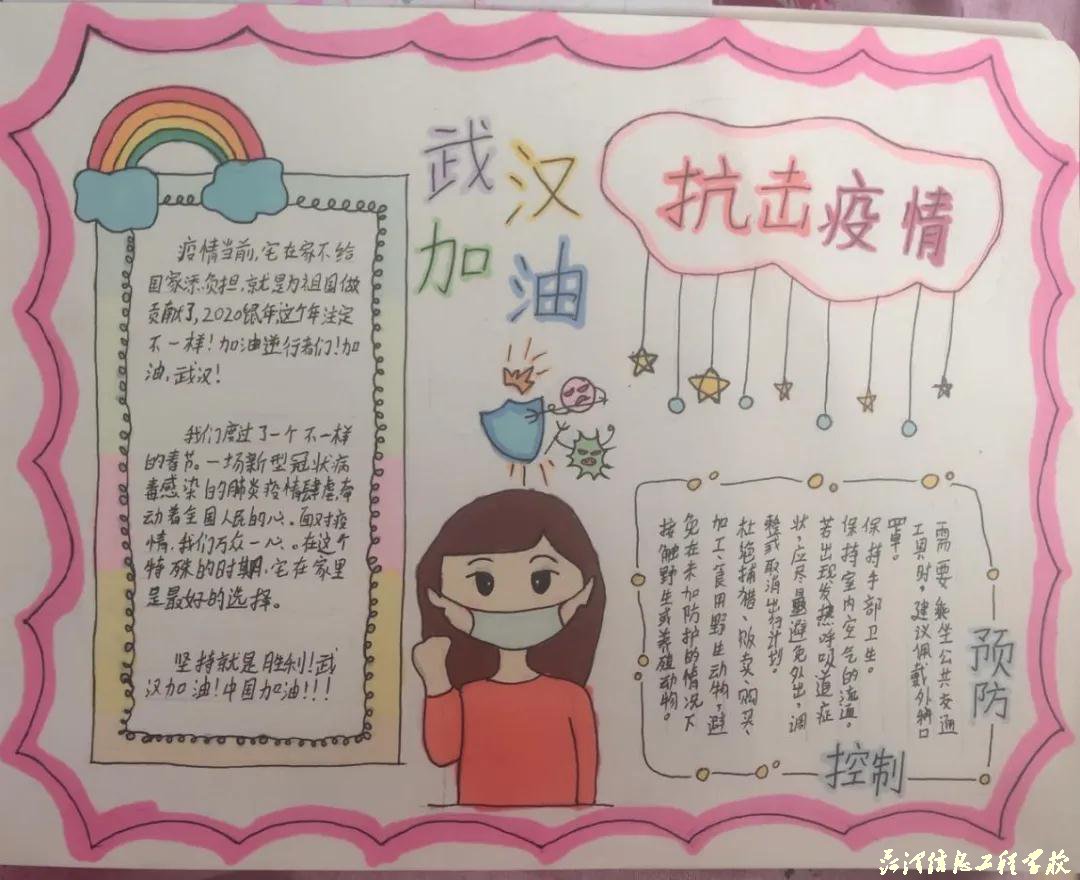 武汉
加油
抗击疫情
疫情当前,宅在家不给
国家添负担,就是为祖国做
贡献了,2020鼠年,这个年注定
不一样!加油逆行者们!加
油,武汉!
我们度过了一个不一样
的春节。一场新型冠状病
毒感染的肺炎疫情肆虐,牵
动着全国人民的心。面对疫
情,我们万众一心。在这个
特殊的时期,宅在家里
是最好的选择。
坚持就是胜利!武
汉加油!中国加油!!!
需要乘坐公共交通
工具时,建议佩戴外科口
罩。
保持手部卫生。
保持室内空气的流通。
若出现发热呼吸道症
状,应尽量避免外出,调
整或取消出行计划。
杜绝捕猎、贩卖、购买、
加工、食用野生动物,避
免在未加防护的情况下
接触野生或养殖动物。
预防
控制
菏泽信息工程学校